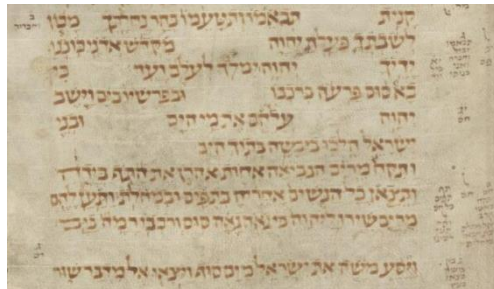 קנית תבאמו ותטעמו בהר נחלתך מכון
לשבתך פעלת יהוה מקדש אדני כוננו
ידיך יהוה ימלך לעלם ועד כי
בא סוס פרעה ברכבו ובפרשיו בים וישב
יהוה עלהם את מי הים ובני
ישראל הלכו ביבשה בתוך הים
ותקח מרים הנביאה אחות אהרן את התף בידה
ותצאן כל הנשים אחריה בתפים ובמחלת ותען להם
מרים שירו ליהוה כי גאה גאה סוס ורכבו רמה בים
ויסע משה את ישראל מים סוף ויצאו אל מדבר שור